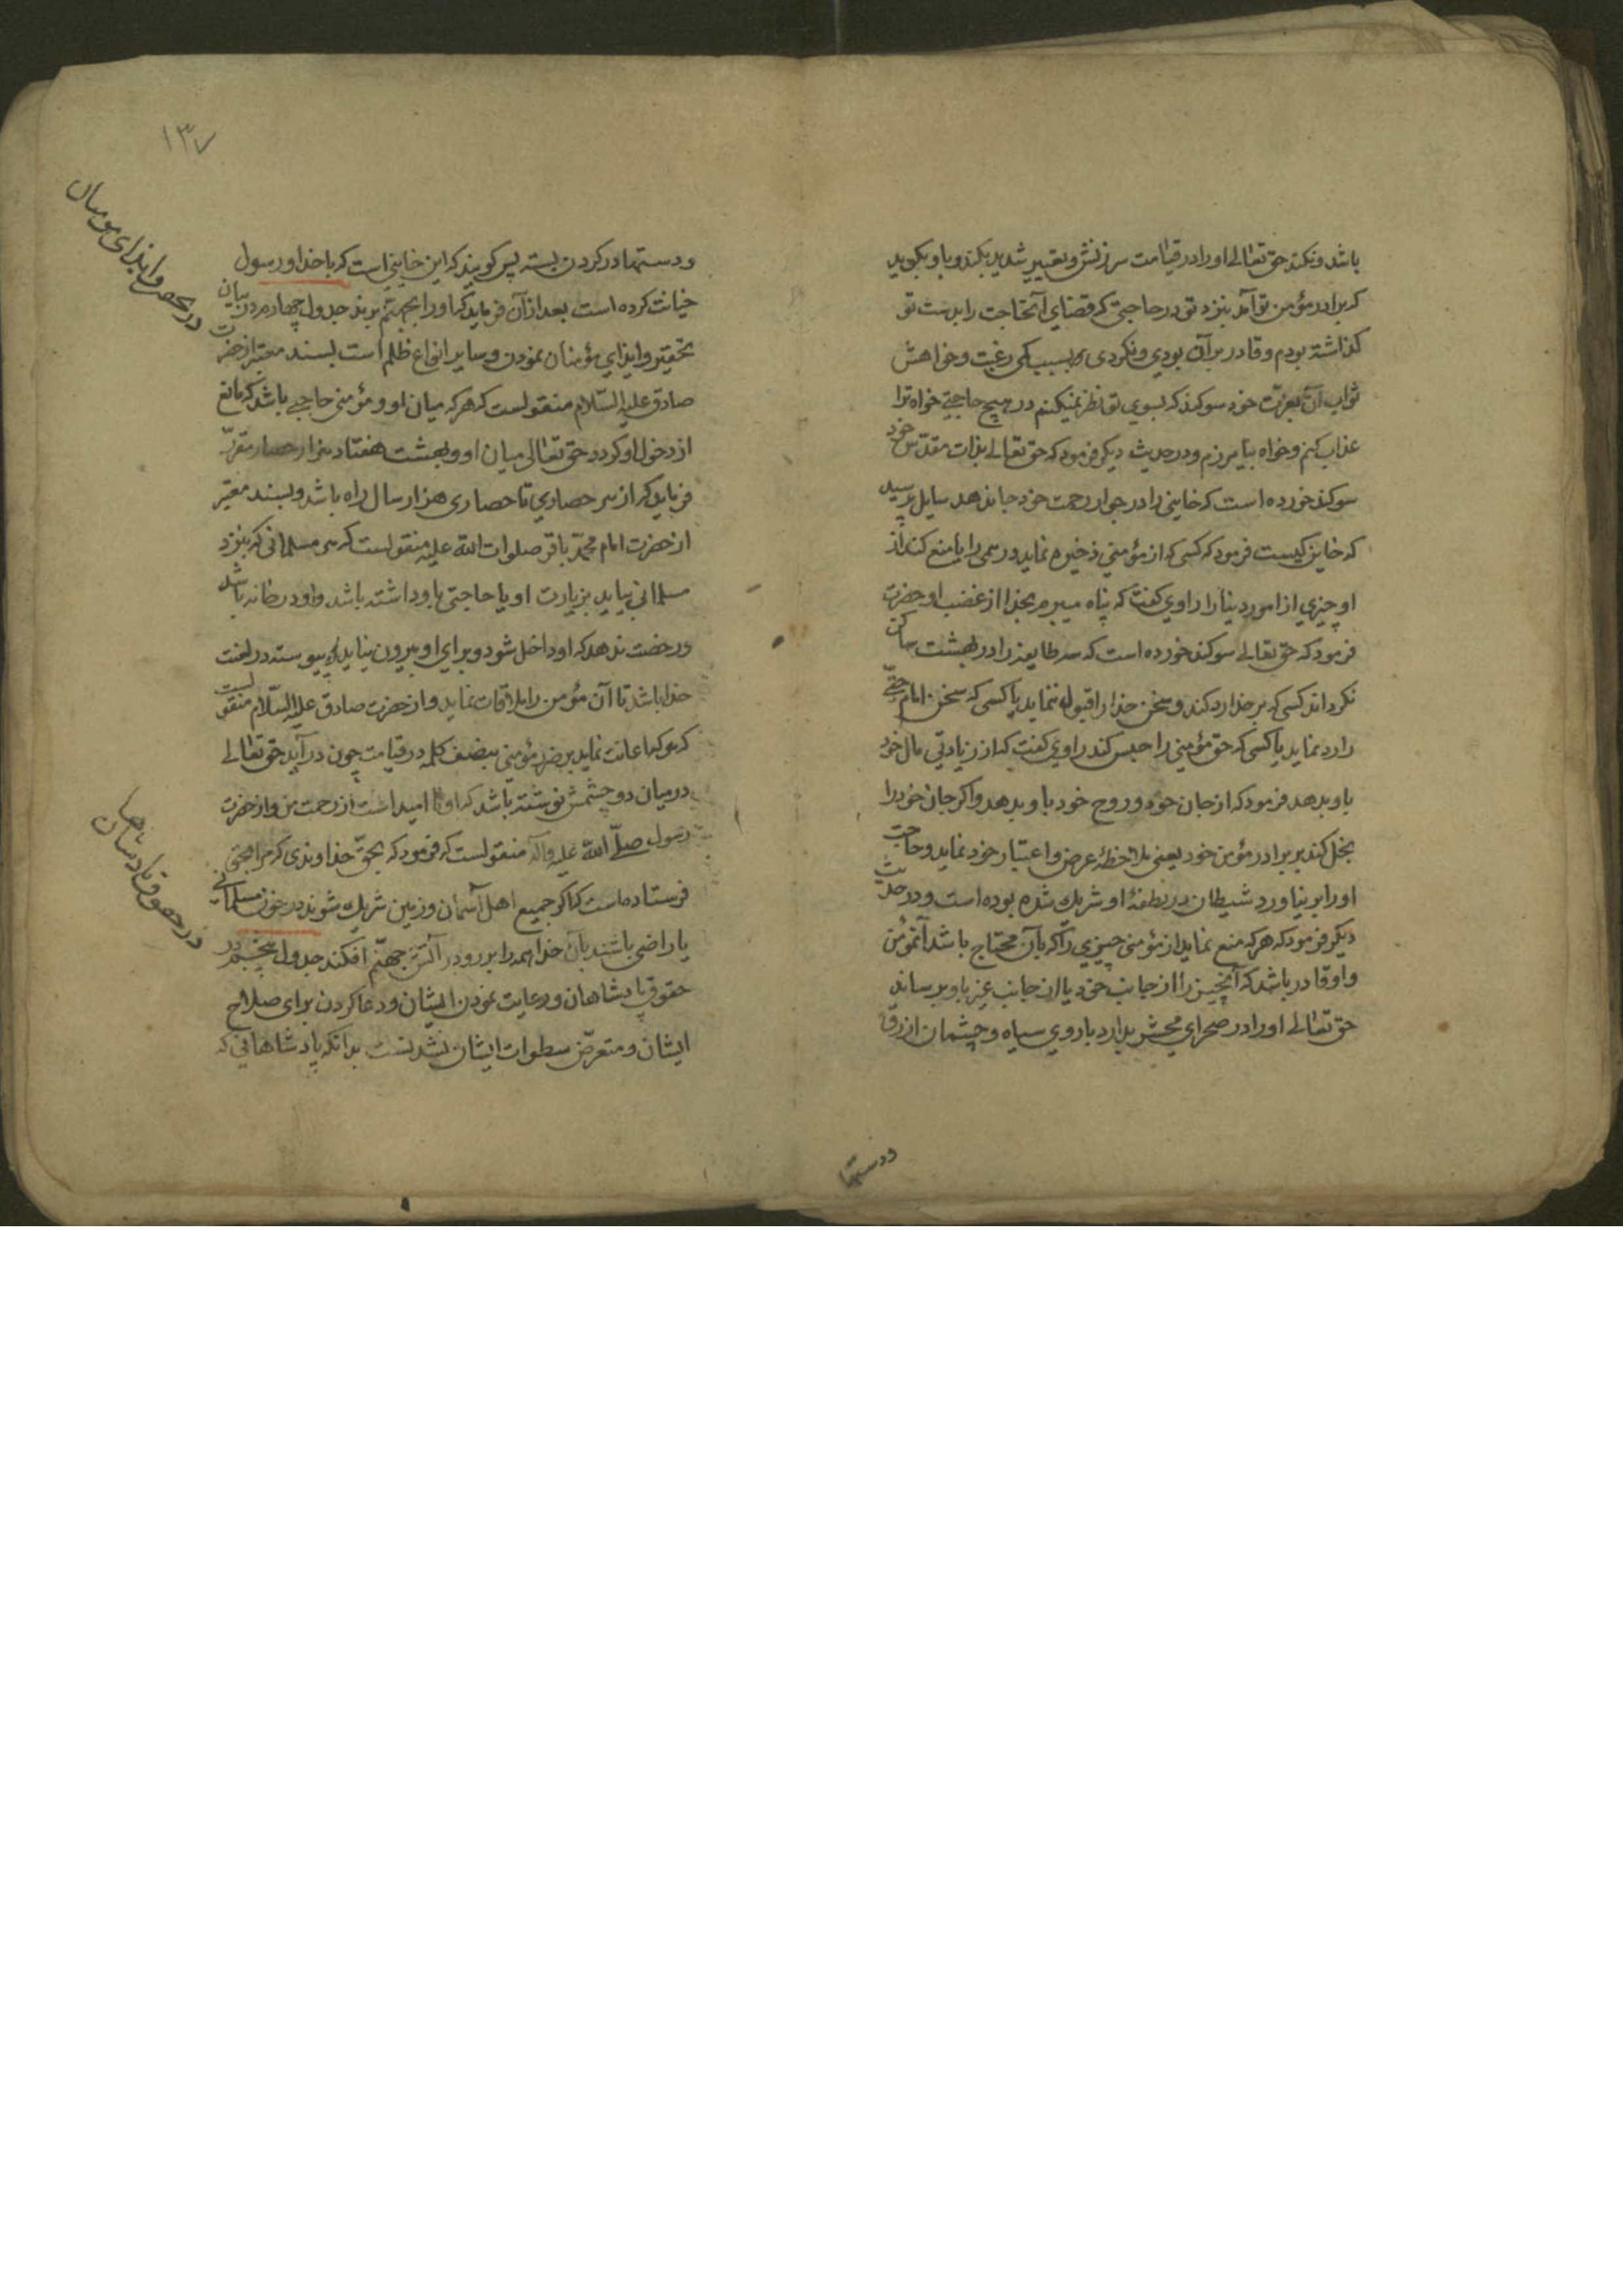 باشد و نکند حق تعالی او را در قیامت سرزنش و تعییر شدید بکند و باو بگوید
که برادر مؤمن تو آمد بنزد تو در حاجتی که قضای آنحاجت را بدست تو
گذاشته بودم و قادر بر آن بودی و نکردی بسبب کمی رغبت و خواهش
ثواب آن بعزت خود سوکند که بسوی تو نظر نمیکنم در هیچ حاجتی خواه ترا
عذاب کنم و خواه بیامرزم و در حدیث دیگر فرمود که حق تعالی بذات مقدّس خود
سوکند خورده است که خاینی را در جوار رحمت خود جا ندهد سایل پرسید
که خاین کیست فرمود که کسی که از مؤمنی ذخیره نماید درهمی را یا منع کند از
او چیزی از امور دنیا را راوی گفت که پناه میبرم بخدا از غضب او حضرت
فرمود که حق تعالی سوکند خورده است که سه طایفه را در بهشت ساکن
نگرداند کسی که بر خدا رد کند و سخن خدا را قبول ننماید یا کسی که سخن امام حقّی
را رد نماید یا کسی که حق مؤمنی را حبس کند راوی گفت که از زیادتی مال خود
باو بدهد فرمود که از جان خود و روح خود باو بدهد و اگر جان خود را
بخل کند بر برادر مؤمن خود یعنی ملاحظهٔ عرض و اعتبار خود نماید و حاجت
او را بر نیاورد شیطان در نطفهٔ او شریك شده بوده است و در حدیث
دیگر فرمود که هر که منع نماید از مؤمنی چیزی را که بآن محتاج باشد آنمؤمن
و او قادر باشد که آنچیز را از جانب خود یا از جانب غیر باو برساند
حق تعالی او را در صحرای محشر بدارد با روی سیاه و چشمان ازرق
ودستها
۱۳۷
و دستها در گردن بسته پس گویند که این خاینی است که با خدا و رسول
خیانت کرده است بعد از آن فرماید که او را بجهنّم برند جدول چهاردهم در بیان
تحقیر و ایذای مؤمنان نمودن و سایر انواع ظلم است بسند معتبر از حضرت
صادق علیه السّلام منقولست که هر که میان او و مؤمنی حاجبی باشد که مانع
از دخول او گردد حق تعالی میان او و بهشت هفتاد هزار حصار مقرّر
فرماید که از هر حصاری تا حصاری هزار سال راه باشد و بسند معتبر
از حضرت امام محمّد باقر صلوات الله علیه منقولست که هر مسلمانی که بنزد
مسلمانی بیاید بزیارت او یا حاجتی باو داشته باشد و او در خانه باشد
و رخصت ندهد که او داخل شود و برای او بیرون نیاید پیوسته در لعنت
خدا باشد تا آن مؤمن را ملاقات نماید و از حضرت صادق علیه السّلام منقولست
که هر که اعانت نماید بر ضرر مؤمنی بنصف کلمه در قیامت چون در آید حق تعالی
در میان دو چشمش نوشته باشد که او نا امید است از رحمت من و از حضرت
رسول صلّی الله علیه وآله منقولست که فرمود که بحقّ خداوندی که مرا بحقی
فرستاده است که اگر جمیع اهل آسمان و زمین شریك شوند در خون مسلمانی
یا راضی باشند بآن خدا همه را برو در آتش جهنّم افکند جدول پنجم در
حقوق پادشاهان و رعایت نمودن ایشان و دعا کردن برای صلاح
ایشان و متعرّض سطوات ایشان نشدنست بدانکه پادشاهانی که
در تحقیر و ایذای مومنان
در حقوق پادشاهان